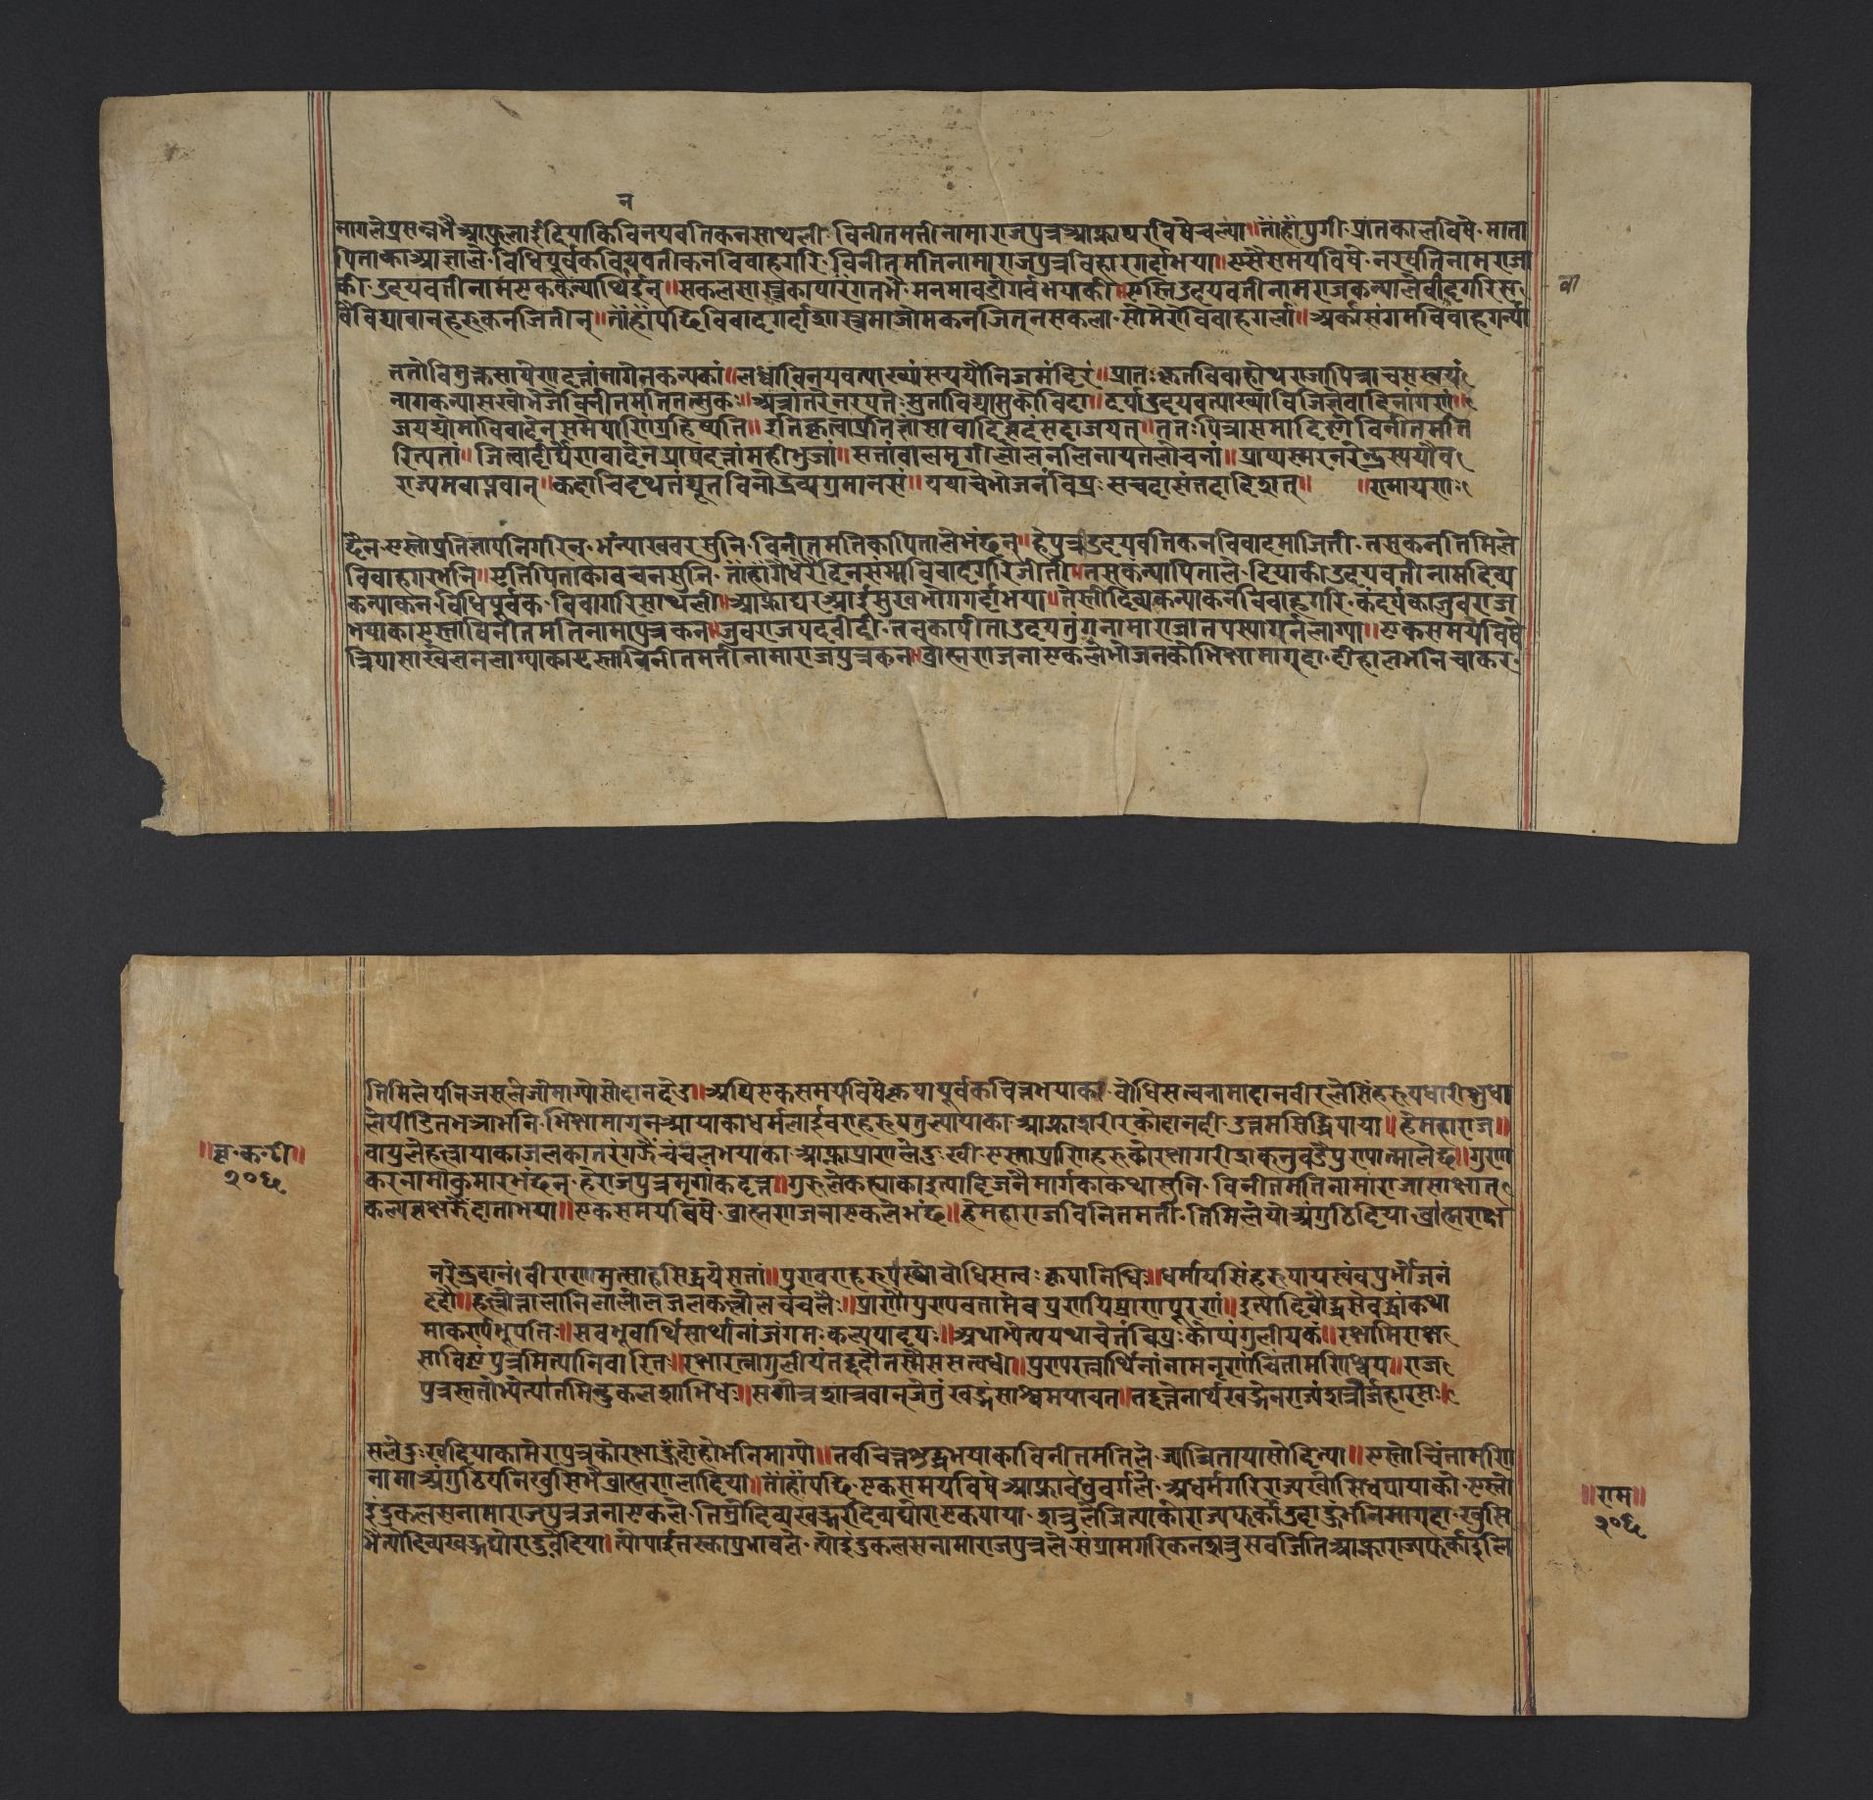 न
नागले प्रसन्न भै आफुलाई दियाकि विनयवतिकन साथ ली विनीतमती नामा राजपुत्र आफ्ना घरविषे चल्या॥ ताँहाँ पुगी प्रातकालविषे माता
पिताका आज्ञाले विधिपूर्वक विनयवतीकन विवाह गरि विनीतमति नामा राजपुत्र विहार गर्दा भया॥ एसै समयविषे नरपति नाम राजा
की उदयवती नाम एक कन्या थिइन्॥ सकल सास्त्रका पारंगत भै मनमा वडो गर्व भयाकी॥ एस्ति उदयवती नाम राजकन्याले वाद गरि स वा
वै विद्यावान्हरुकन जितीन्॥ ताँहाँपछि विवाद गर्दा शास्त्रमा जो मकन जित्न सकला सो मेरो विवाह गर्ला॥ अर्कासंग म विवाह गर्न्या
ततो विमुक्तसायेरा दत्तां नागेन कन्यकां॥ लब्ध्वा विनयवत्याख्यां स ययौ निजमंदिरं॥ प्रातः कृतविवाहोथ राजा पित्रा च सत्वयं
नागकन्यासखो भेजे विनीतमतिरुत्सुकः॥ अत्रांतरे नरपतेः सुता विद्यासु कोविदा॥ दर्पादुदयवत्याख्या विजित्ये वादिनां गणं॥
जयेद्यो मां विवादेन स मे पाणिं ग्रहिष्यति॥ इति कृत्वा प्रतिज्ञां सा वादिवृदं सदाजयत्॥ ततः पित्रा समादिष्टो विनीतमति
रेत्य तां॥ जित्वा दीर्घेण वादेन प्राप दत्तां महीभुजा॥ स तां वालमृगीलोलनलिनायतलोचनां॥ प्राप्य स्मरनरेन्द्रस्य यौव
राज्यमवाप्तवान्॥ कदाचिदथ तं द्यूतविनोदव्यग्रमानसं॥ ययाचे भोजनं विप्रः स च दासं तदादिशत्॥ ॥रामायराः
छैन एस्तो प्रतिज्ञा पनि गरिन् भंन्या खवर सुनि विनीतमतिका पिताले भंछन्॥ हे पुत्र उदयवतिकन विवादमा जिती तसकन तिमिले
विवाह गर भनि॥ एति पिताका वचन सुनि ताँहाँ गै धेरै दिनसंम विवाद गरि जीती॥ तस कन्या पिताले दियाकी उदयवती नाम दिव्य
कन्याकन विधिपूर्वक विवाह गरि साथ ली॥ आफ्ना घर आई सुखभोग गर्दा भया॥ तेस्ती दिव्य कन्याकन विवाह गरि कंदर्पका जुवराज
भयाका एस्ता विनीतमति नामा पुत्रकन॥ जुवराज पदवी दी तनका पीता उदयतुंग नामा राजा तपस्या गर्न लाग्या॥ एक समयेविषे
त्रिपासा खेलन लाग्याका एस्ता विनीतमती नामा राजपुत्रकन॥ व्राह्मण जना एकले भोजनको भिक्षा मागदा दीहाल भनि चाकर
तिमिले पनि जसले जो माग्यो सो दान देउ॥ अघि एक समयविषे कृपापूर्वक चित्त भयाका वोधिसत्व नामा दानवीरले सिंहरूपधारी क्षुधा
ले पीडित भञा भनि भिक्षा मागन आयाका धर्मलाई वराहरूप तुल्यायाका आफ्ना शरीरको दान दी उत्तम सिद्धि पाया॥ हे महाराज॥
वायुले हल्लायाका जलका तरंग झैं चंचल भयाका आफ्ना प्राणले दुःखी एस्ता प्राणिहरुको रक्षा गरी शकनु वडै पुण्यात्माले छ॥ गुणा
कर नामा कुमार भंछन् हे राजपुत्र मृगांकदत्त॥ गुरुले कह्याका इत्यादि जैनमार्गका कथा सुनि विनीतमति नामा राजा साक्षात्
कल्पवृक्ष झैं दाता भया॥ एक समयविषे व्राह्मण जना एकले भंछ॥ हे महाराज विनितमती तिमिले यो अंगुठि दिया व्राह्मराक्ष
नरेन्द्र दानं वीराणामुत्साहसिद्धये सतां॥ पुरा वराहरूपस्थो वोधिसत्वः कृपानिधिः॥ धर्माय सिंहरूपाय स्वं वपुर्भोजनं
ददौ॥ हल्लोत्तालानिलालोलजलकल्लोलचंचलैः॥ प्राणैः पुण्यवतामेव प्रणयिप्राणपूरणं॥ इत्यादि वौद्धसंवद्धां कथा
माकर्ण्य भूपतिः॥ स वभूवार्थिसार्थानां जंगमः कल्पपादपः॥ अथाभ्येत्य ययाचे तं विप्रः कोप्यंगुलीयकं॥ रक्षामि राक्ष
साविष्टं पुत्रमित्यनिवारितः॥ रक्षारत्नांगुलीयं तद्ददौ तस्मै स सत्वधीः॥ पुण्यरत्नार्थिनां नाम नृणां चिंतामणिर्नृपः॥ राज
पुत्रस्ततोभ्येत्य तमिन्दुकलशाभिधः॥ सगोत्रशात्रवान् जेतुं खड्गं साश्वमयाचत॥ तद्दत्तेनाथ खड्गेन राज्यं शत्रोर्जहार सः॥
सले दुःख दियाका मेरा पुत्रको रक्षा हुँदो हो भनि माग्यो॥ तव चित्त शुद्ध भयाका विनीतमतिले ज्या चितायो सो दित्या॥ एस्तो चिंतामणि
नामा अंगुठि पनि खुसि भै व्राह्मणलाइ दिया॥ ताँहाँपछि एक समयविषे आफ्ना वंधुवर्गले अधर्म गरि राज्य खोसिवपायाको एस्तो
इंदुकलस नामा राजपुत्र जना एकले तिम्रो दिव्य खड्ग र दिव्य घोरा एक पाया शत्रुले जित्याको राज्य फर्काउदा हुं भनि मागदा खुसि
भै त्यो दिव्य खड्ग घोरा दुवै दिया॥ त्यो पाई तस्का प्रभावले त्यो इंदुकलस नामा राजपुत्रले संग्राम गरिकन शत्रु सव जिति आफ्ना राज्य फर्काइ लि
॥वृ॰क॰टी॥
२०६
॥राम॥
२०६